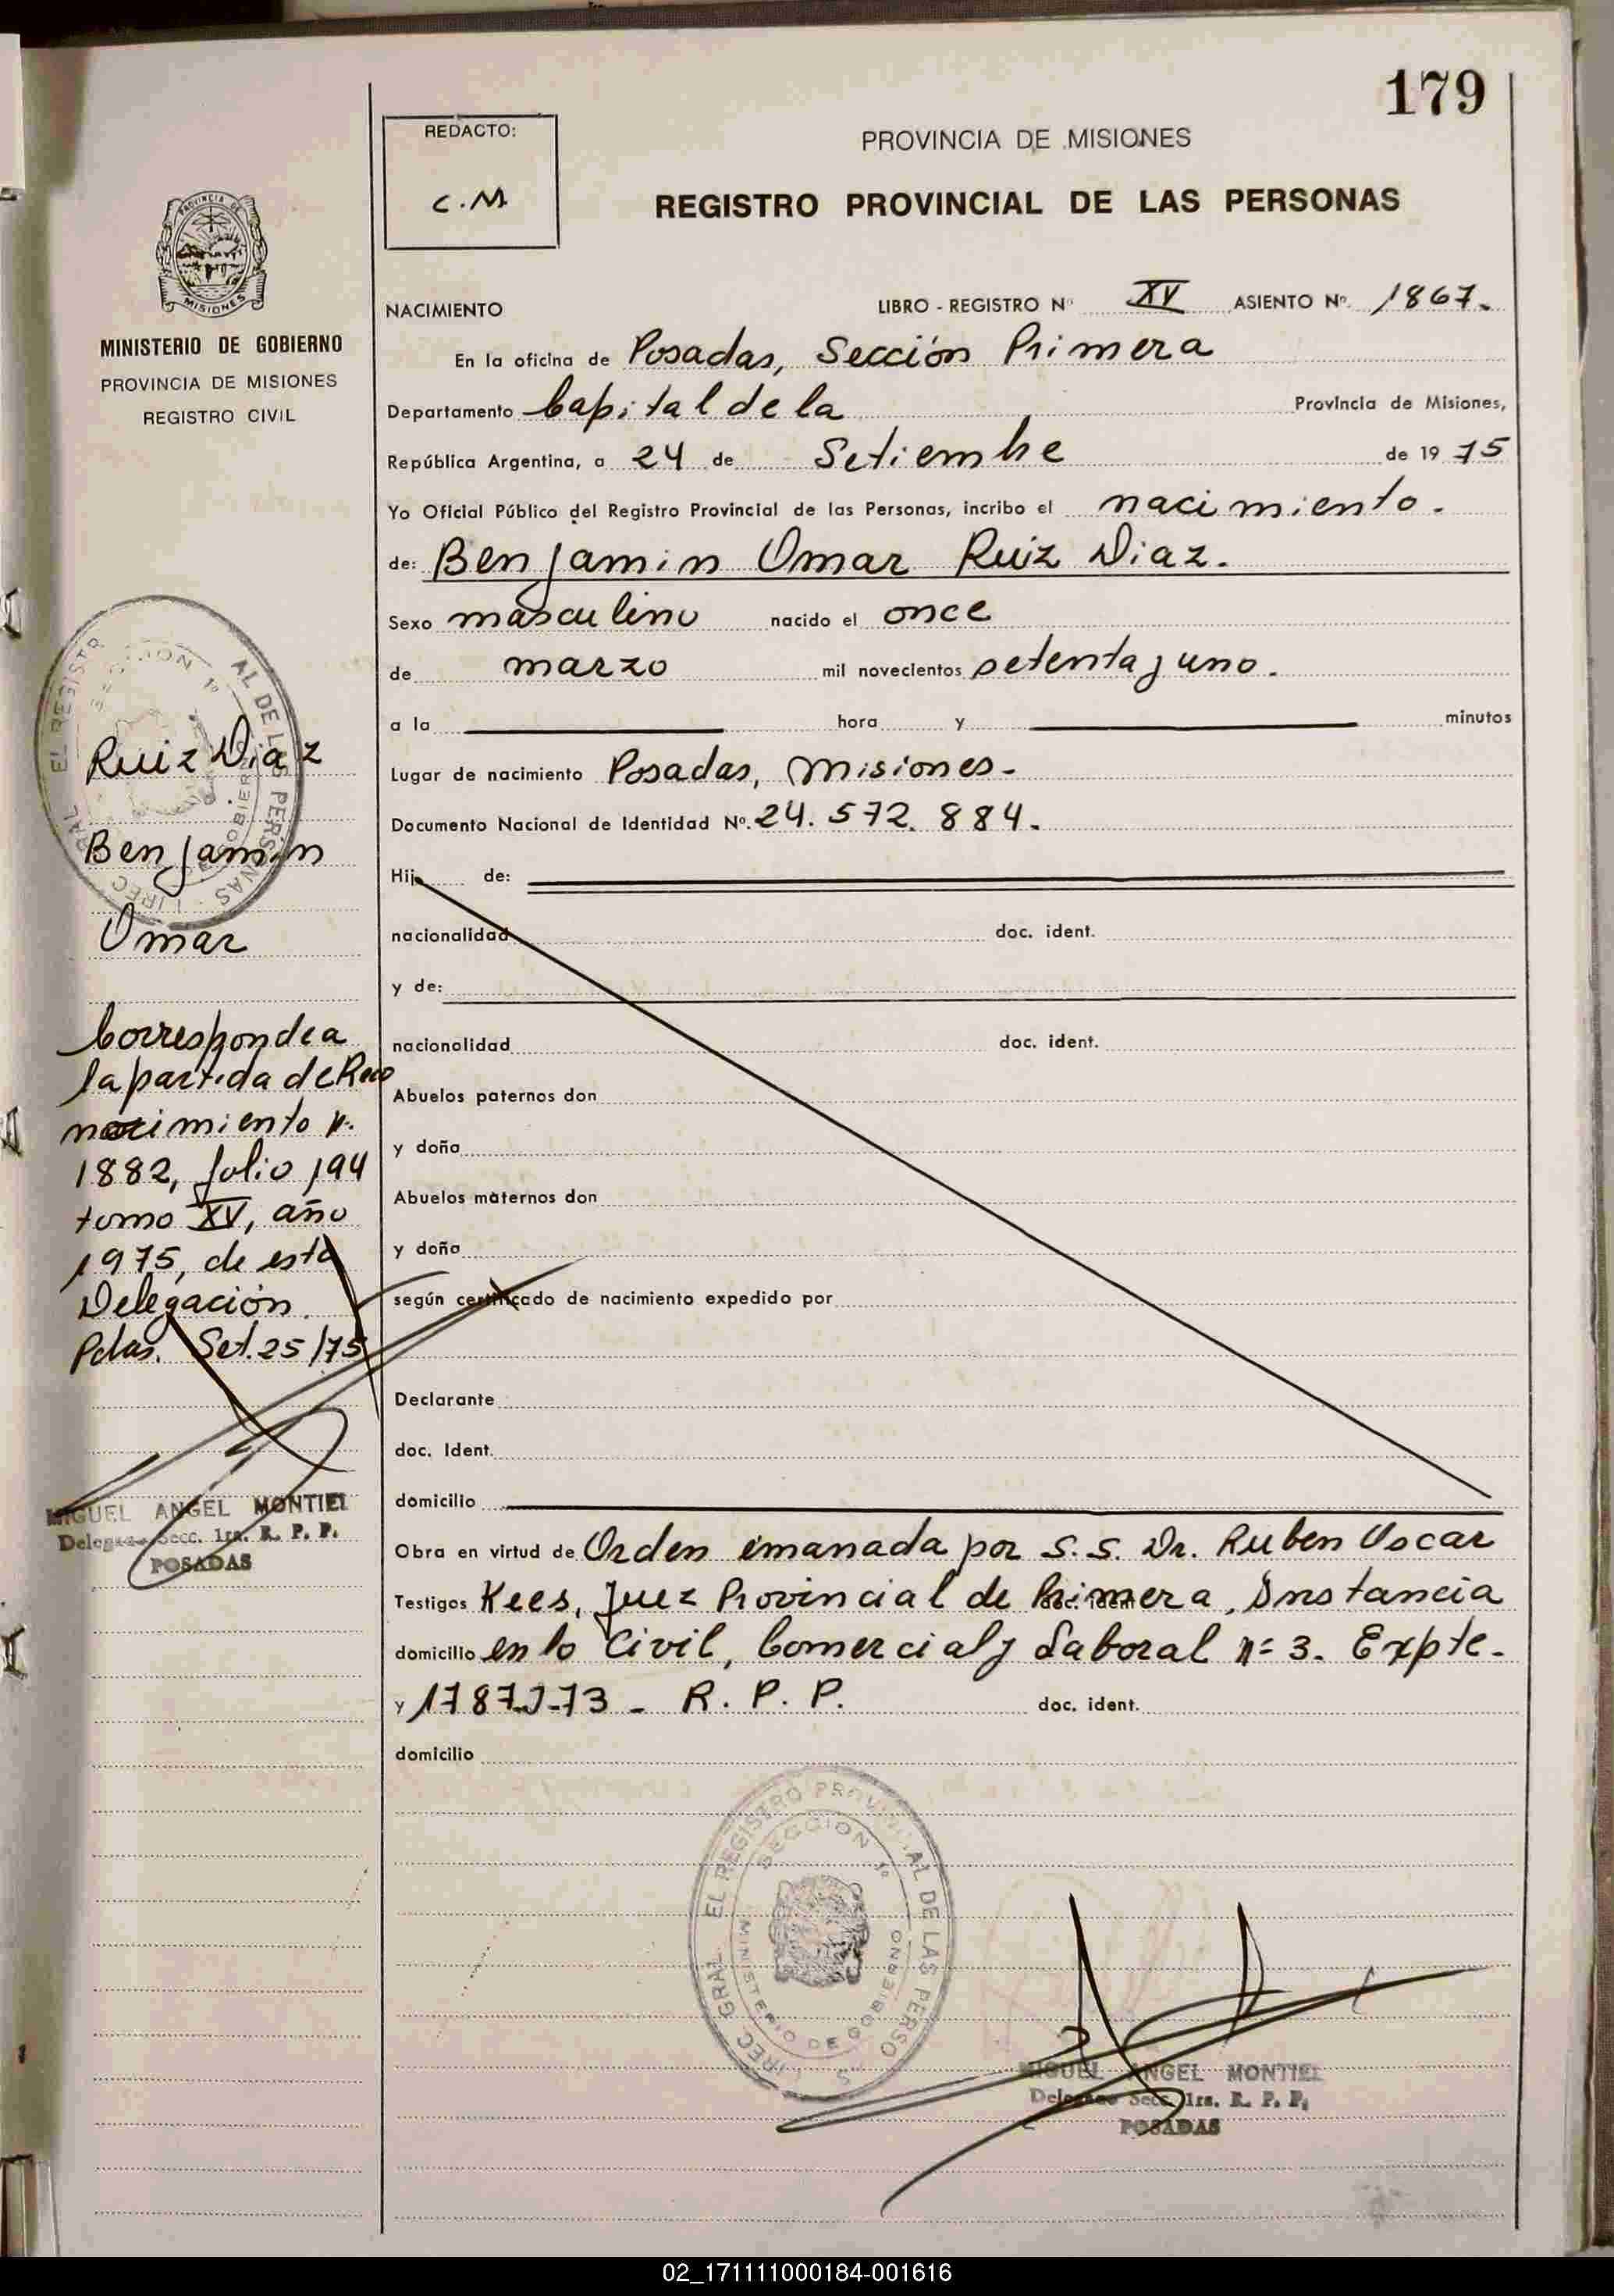 179
REDACTO:
C.M
PROVINCIA DE MISIONES
REGISTRO PROVINCIAL DE LAS PERSONAS
MISIONES
MINISTERIO DE GOBIERNO
PROVINCIA DE MISIONES
REGISTRO CIVIL
NACIMIENTO LIBRO - REGISTRO Nº XV ASIENTO Nº. 1867.
En la oficina de Posadas, Sección Primera
Departamento Capital de la Provincia de Misiones,
República Argentina, a 24 de Setiembre de 19 75
Yo Oficial Público del Registro Provincial de las Personas, incribo el nacimiento.
de: Benjamin Omar Ruiz Diaz.
Sexo masculino nacido el once
de marzo mil novecientos setenta y uno.
a la hora y minutos
Lugar de nacimiento Posadas, Misiones-
Documento Nacional de Identidad Nº. 24.572.884.
Hij de:
nacionalidad doc. ident.
y de:
nacionalidad doc. ident.
Abuelos paternos don
y doña
Abuelos maternos don
y doña
según certificado de nacimiento expedido por
Declarante
doc. Ident.
domicilio
Obra en virtud de Orden emanada por S.S. Dr. Ruben Oscar
Testigos Kees, Juez Provincial de Primera Instancia
domicilio en lo Civil, Comercial y Laboral n= 3. Expte.
y 1787-J-73 - R. P. P. doc. ident.
domicilio
Ruiz Diaz
Benjamin
Omar
Corresponde a
la partida de Reco
nocimiento n.
1882, folio 194
tomo XV, año
1975, de esta
Delegación.
Pdas. Set. 25/75
MIGUEL ANGEL MONTIEL
Delegado Secc. 1ra. R. P. P.
POSADAS
EL REGISTRO PROVINCIAL DE LAS PERSO
SECCION 1º
MINISTERIO DE GOBIERNO
MIGUEL ANGEL MONTIEL
Delegado Secc. 1ra. R. P. P.
POSADAS
02_171111000184-001616